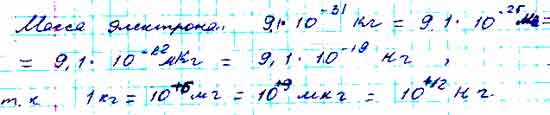 Масса электрона: 9,1·10⁻³¹ кг = 9,1·10⁻²⁵ мг =
= 9,1·10⁻²² мкг = 9,1·10⁻¹⁹ нг,
т.к. 1 кг = 10⁺⁶ мг = 10⁺⁹ мкг = 10⁺¹² нг.